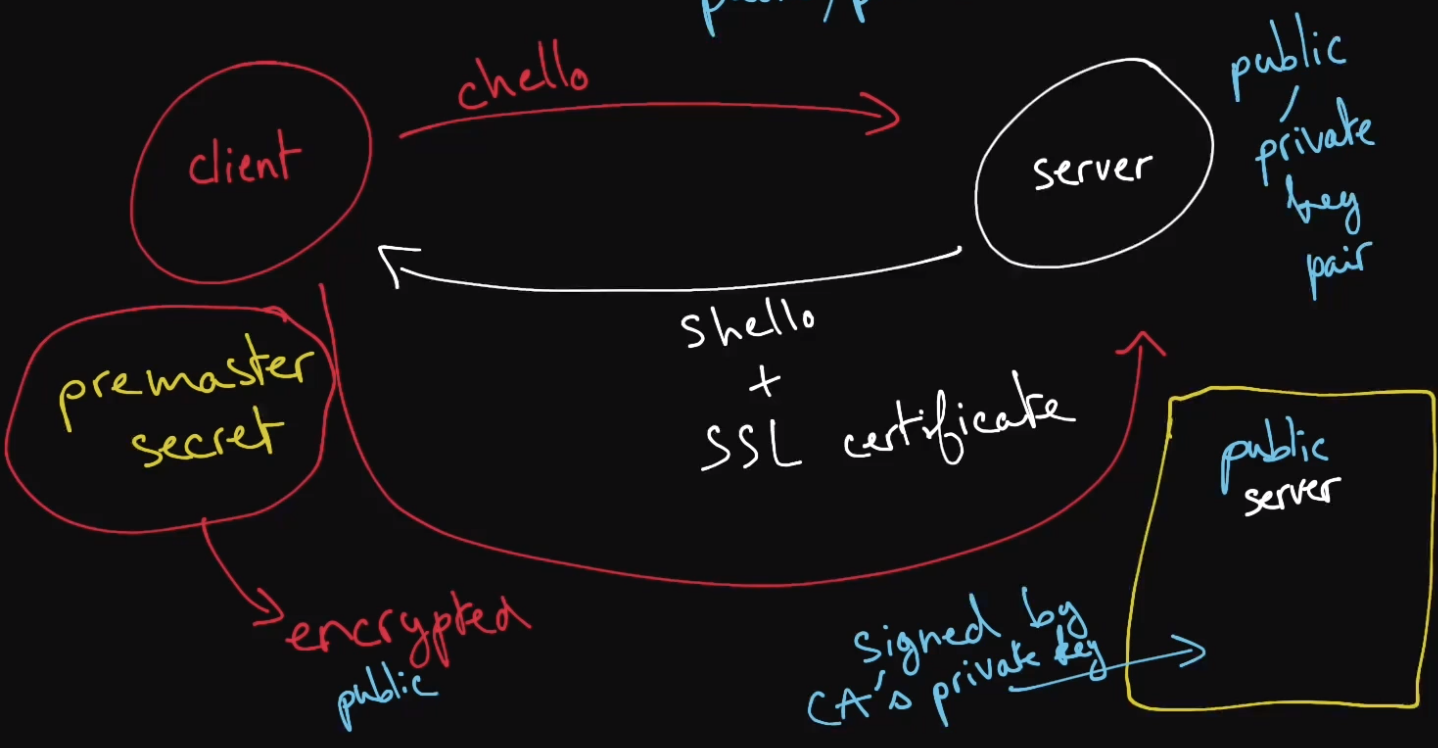 chello
client
server
public
/
private
key
pair
shello
+
SSL certificate
premaster
secret
public
server
encrypted
public
signed by
CA's private key